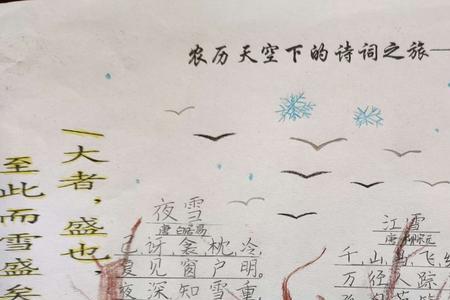 农历天空下的诗词之旅—
一大者，盛也，
至此而雪盛矣
夜雪
唐 白居易
已讶衾枕冷，
复见窗户明。
夜深知雪重，
江雪
唐 柳宗元
千山鸟飞
万径 踪